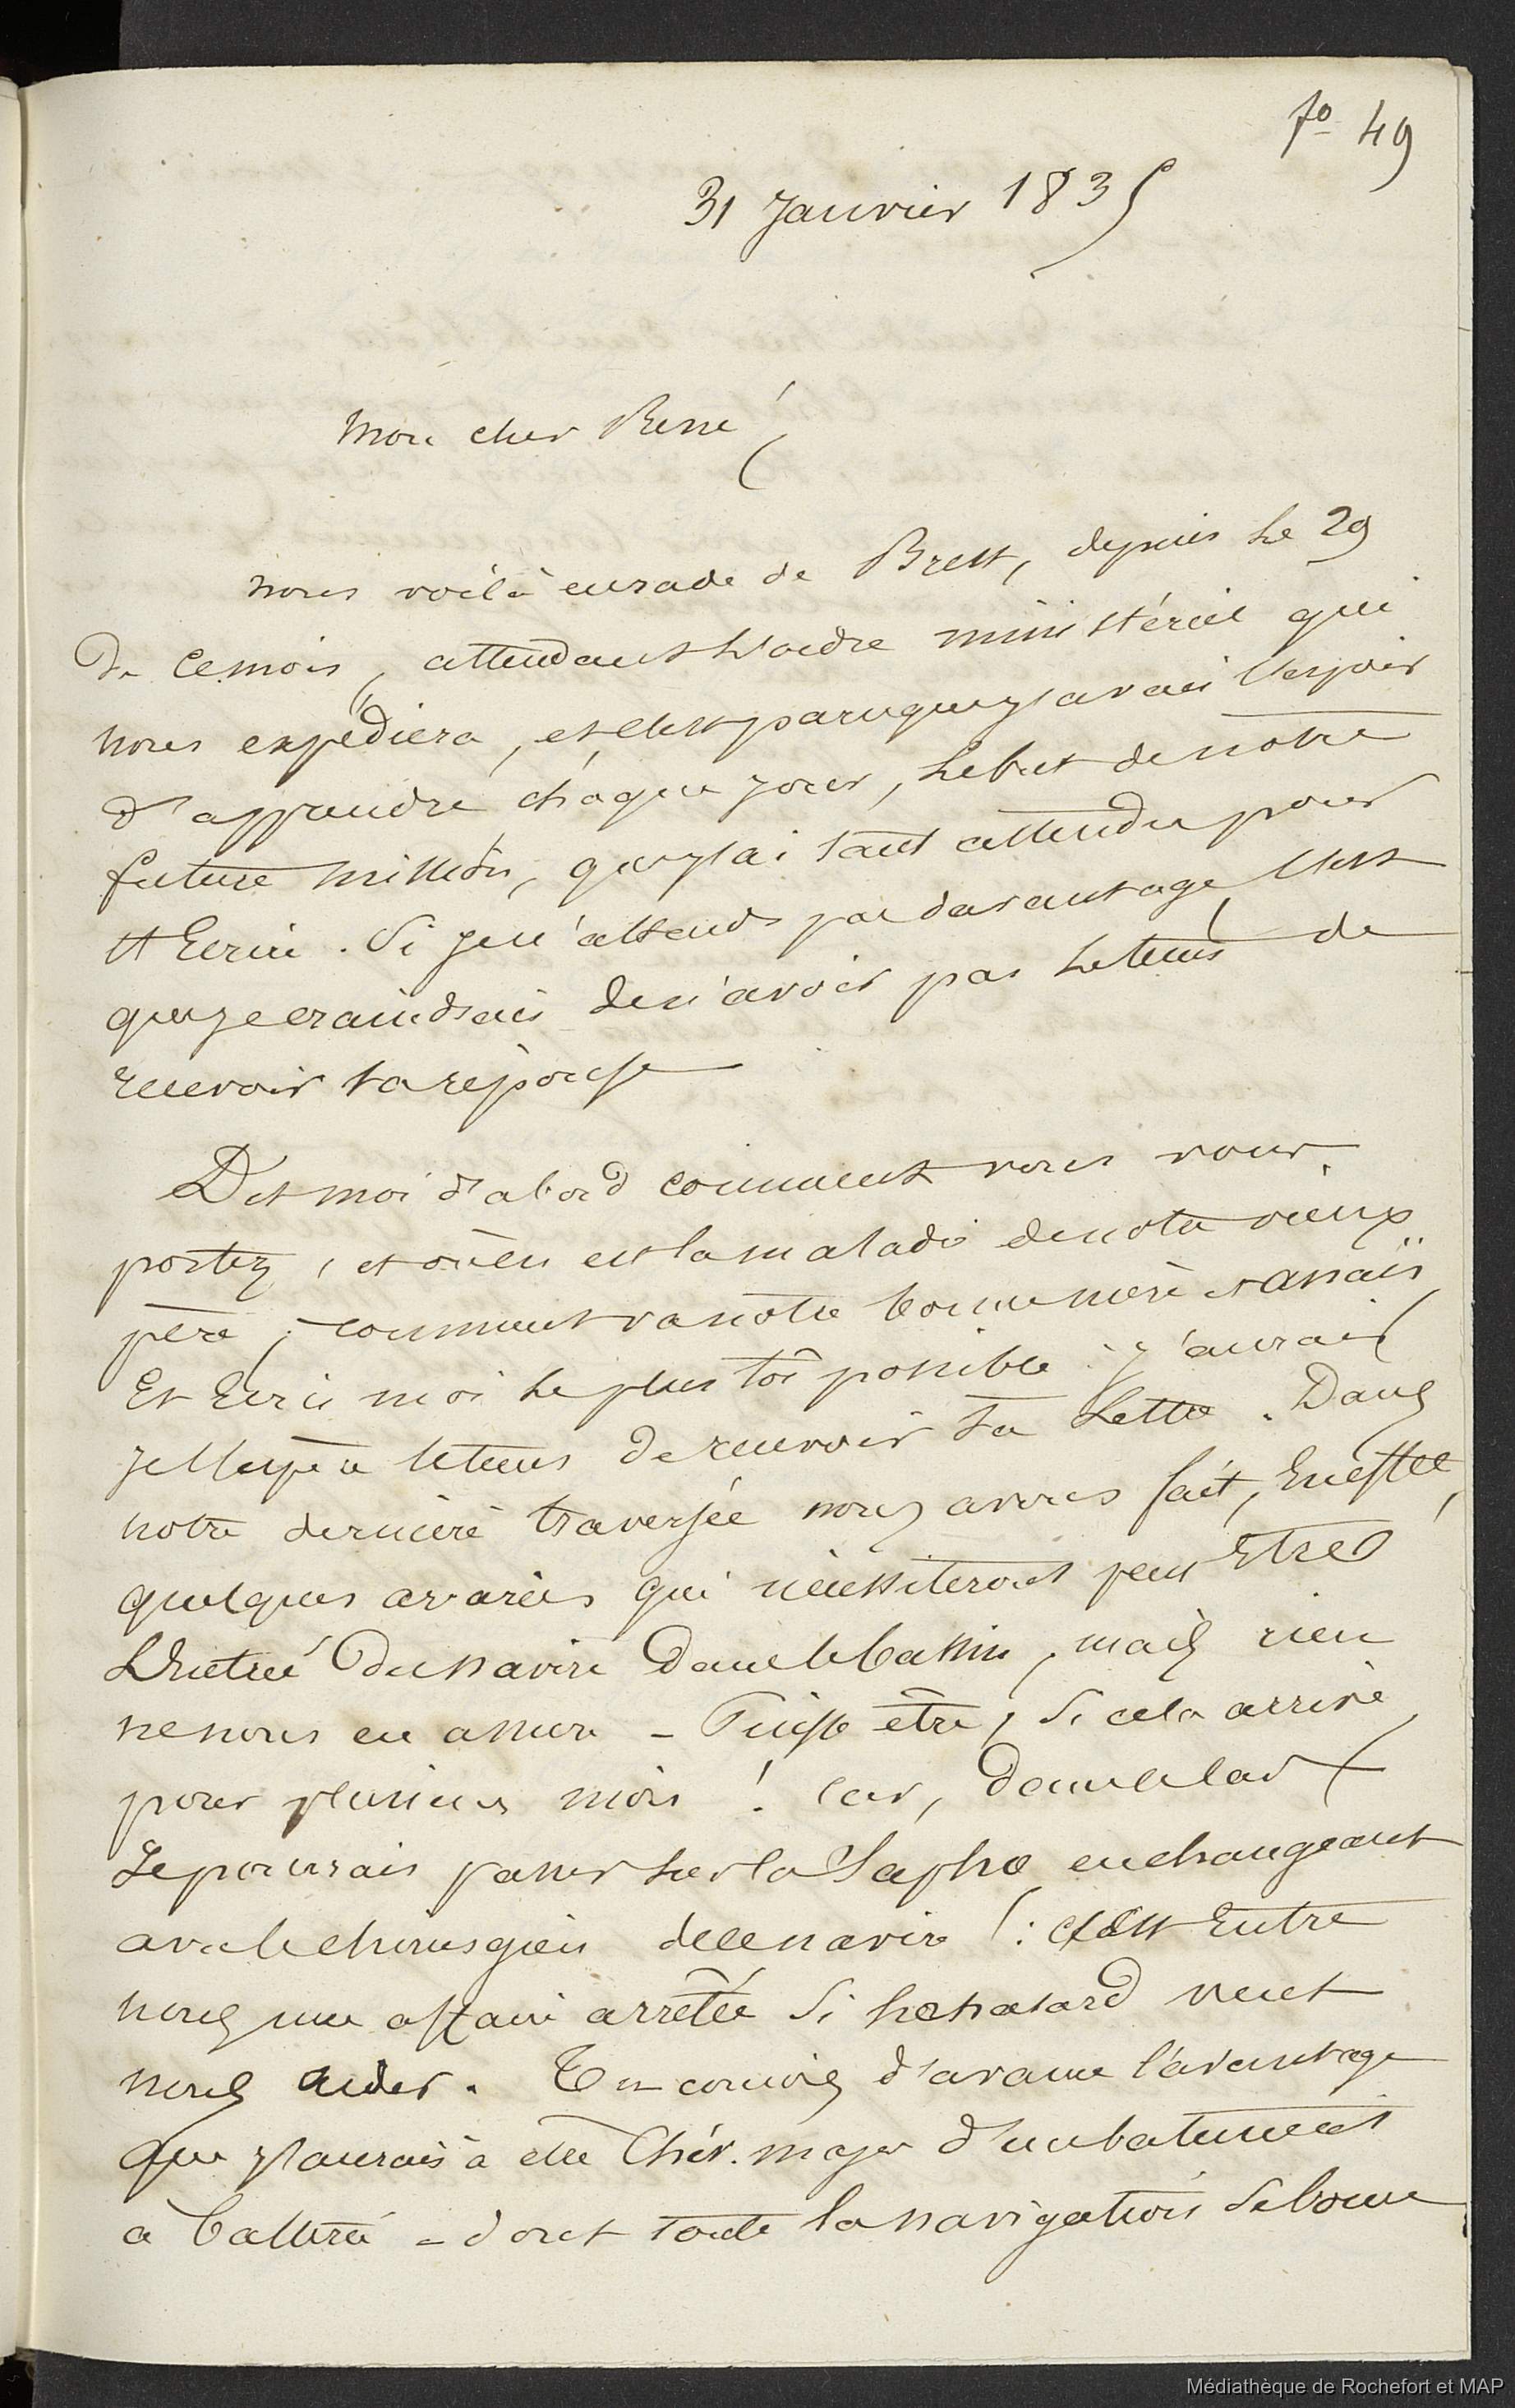 fo 49
31 Janvier 1835
Mon cher René,
nous voilà en rade de Brest, depuis le 29
de ce mois, attendant l'ordre ministériel qui
nous expédiera, et c'est parce que j'avais l'espoir
d'apprendre chaque jour, le but de notre
future mission, que j'ai tant attendu pour
t'écrire. Si je n'attends pas davantage, c'est
que je craindrais de n'avoir pas le tems de
recevoir ta réponse
Dis moi d'abord comment vous vous
portez, et où en est la maladie de notre vieux
père, comment va notre bonne mère et anaïs
Et Ecris moi le plus tôt possible : j'aurai
je l'espère le tems de recevoir ta Lettre. Dans
notre dernière traversée nous avons fait, En effet,
quelques avaries qui nécessiteront peut Etre
L'Entrée du navire dans le bassin, mais rien
ne nous en assure - Puisse être, Si cela arrive,
pour plusieurs mois ! car, dans ce cas
Je pourrais passer sur la Sapho en changeant
avec le chirurgien de ce navire ! : c'est Entre
nous une affaire arrêtée Si le hasard veut
nous aider. Tu conçois d'avance l'avantage
que j'aurais à être Chir. major d'un batiment
à batterie - dont toute la navigation se borne
Médiathèque de Rochefort et MAP